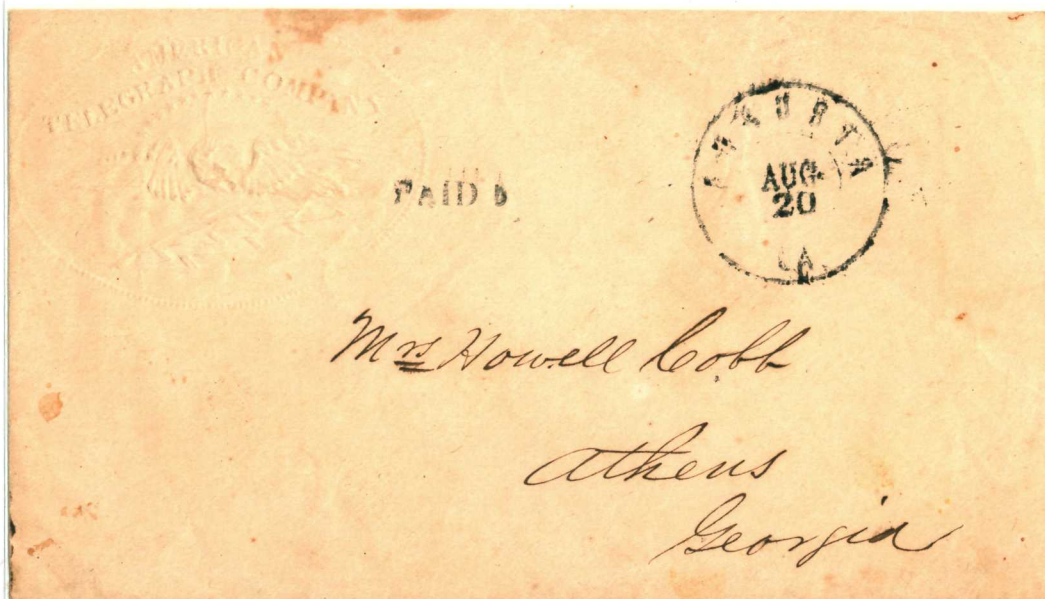 AMERICAN
TELEGRAPH COMPANY
PAID 5
AUGUSTA
AUG.
20
GA.
Mrs Howell Cobb
Athens
Georgia